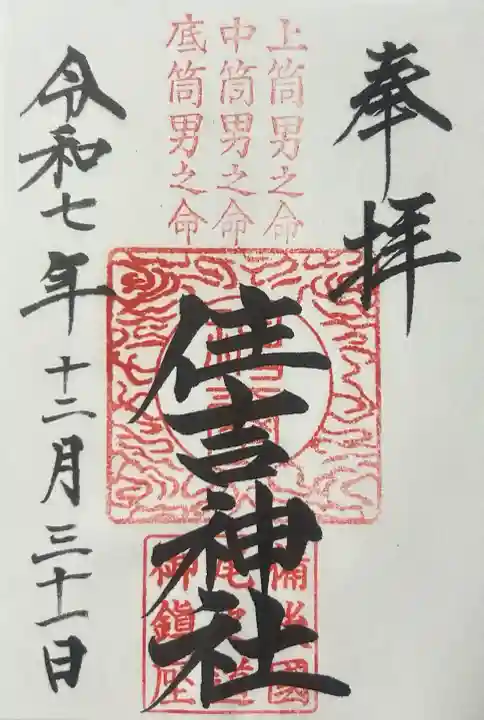 奉拝
上筒男之命
中筒男之命
底筒男之命
住吉神社
備後國
尾道
御鎮座
令和七年十二月三十一日